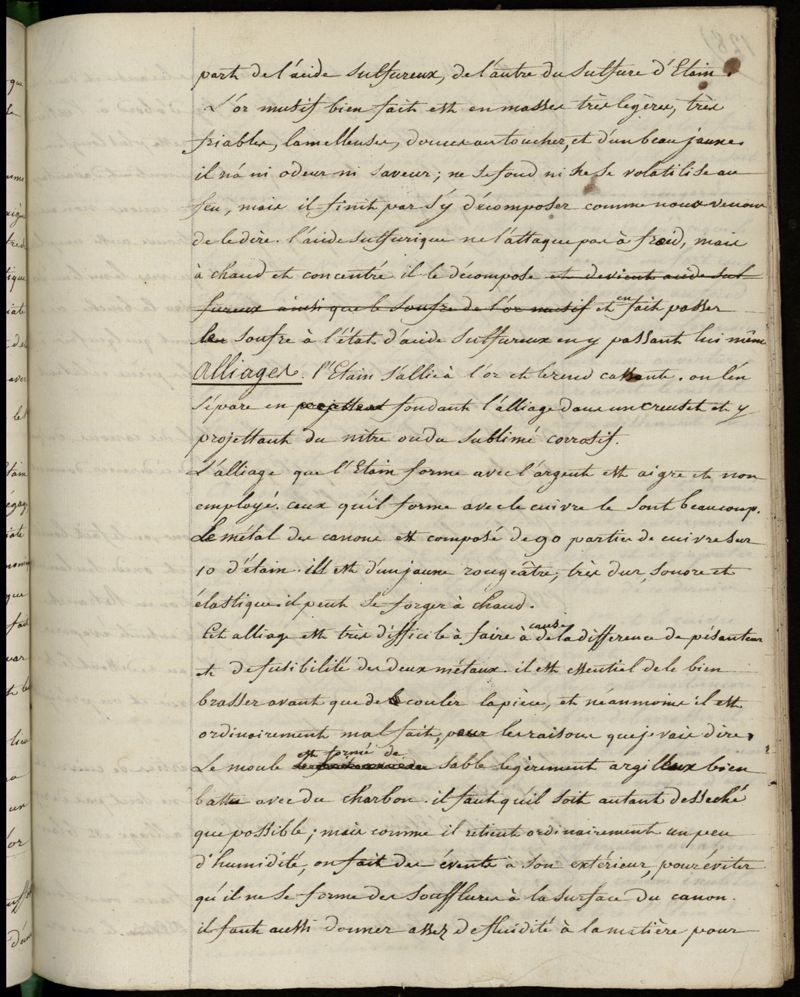 part de l'acide sulfureux, de l'autre du sulfure d'Etain.
L'or musif bien fait est en masses très legères, très
friables, lamelleuses, douces au toucher, et d'un beau jaune.
il n'a ni odeur ni saveur ; ne se fond ni ne se volatilise au
feu, mais il finit par s'y décomposer comme nous venons
de le dire. l'acide sulfurique ne l'attaque pas à froid, mais
à chaud et concentré il le décompose et devient acide sul
fureux ainsi que le soufre de l'or musif et en fait passer
le soufre à l'état d'acide sulfureux en y passant lui même
Alliages. l'Etain s'allie à l'or et le rend cassant. on l'en
sépare en projettant fondant l'alliage dans un creuset et y
projettant du nitre ou du sublimé corrosif.
L'alliage que l'Etain forme avec l'argent est aigre et non
employé. ceux qu'il forme avec le cuivre le sont beaucoup.
Le métal des canons est composé de 90 parties de cuivre sur
10 d'étain. il est d'un jaune rougeâtre, très dur, sonore et
élastique. il peut se forger à chaud.
Cet alliage est très difficile à faire à cause de la difference de pésanteur
et de fusibilité des deux métaux. il est essentiel de le bien
brasser avant que de couler la pièce, et néanmoins il est
ordinairement mal fait, pour les raisons que je vais dire.
Le moule est formé de sable legèrement argilleux bien
battu avec du charbon. il faut qu'il soit autant desseché
que possible ; mais comme il retient ordinairement un peu
d'humidité, on fait des évents à son extérieur, pour éviter
qu'il ne se forme des soufflures à la surface du canon.
il faut aussi donner assez de fluidité à la matière pour